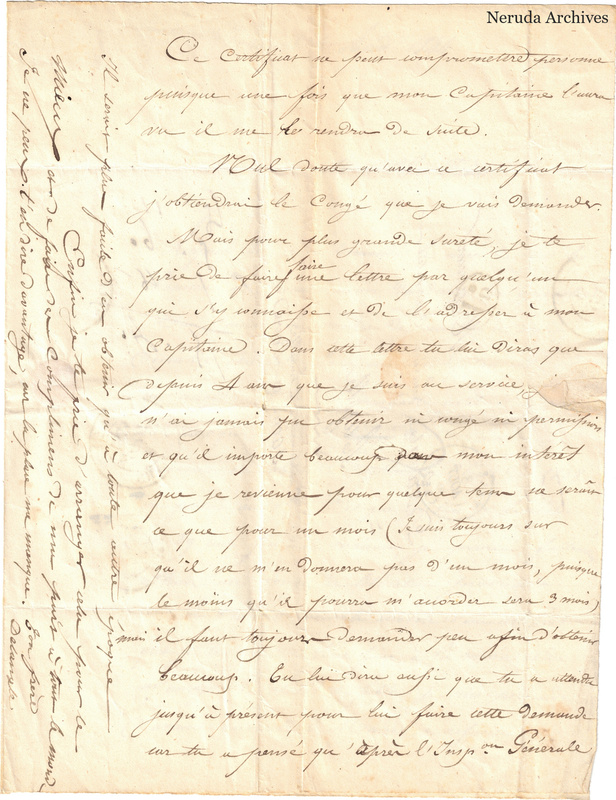 Neruda Archives
Ce Certificat ne peut compromettre personne
puisque une fois que mon Capitaine l'aura
vu il me le rendra de suite.
Nul doute qu'avec ce certificat
j'obtiendrai le Congé que je vais demander.
Mais pour plus grande sureté, je te
prie de faire faire une lettre par quelqu'un
qui s'y connaisse et de l'adresser à mon
Capitaine. Dans cette lettre tu lui diras que
depuis 4 ans que je suis au service j
n'ai jamais pu obtenir ni congé ni permission
et qu'il importe beaucoup pour mon intérêt
que je revienne pour quelque tems ne serait
ce que pour un mois (Je suis toujours sur
qu'il ne m'en donnera pas d'un mois, puisque
le moins qu'il pourra m'accorder sera 3 mois)
mais il faut toujours demander peu afin d'obtenir
beaucoup. Tu lui diras aussi que tu a attendu
jusqu'à présent pour lui faire cette demande
car tu a pensé qu'après l'Insp on Générale
Il serait plus facile d'en obtenir qu'à toute autre époque
Enfin je te prie d'arranger cela pour le
Mieux et de faire des Complimens de ma part à tout le monde
Je ne peux t'en dire davantage, car la place me manque.